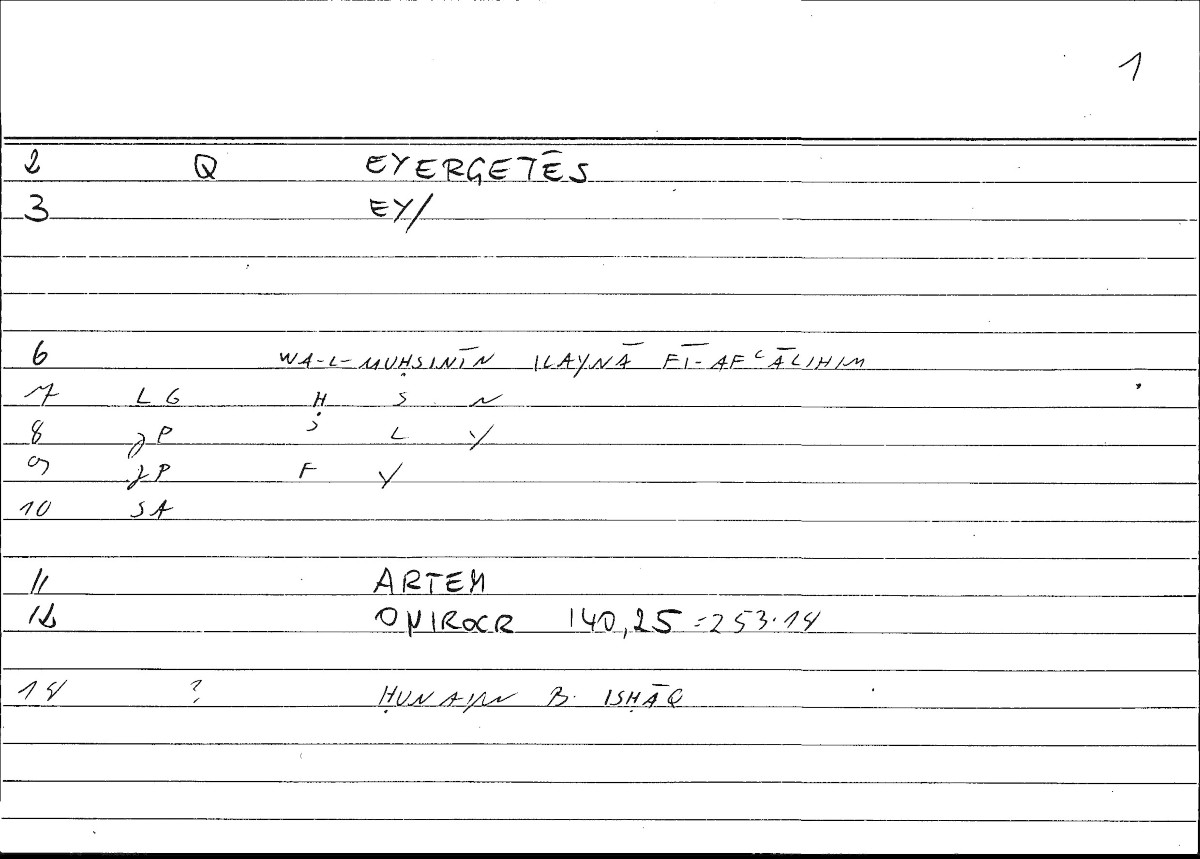 1
2 Q EYERGETĒS
3 EY/
6 WA-L-MUḤSINĪN ILAYNĀ FĪ-AFʿĀLIHIM
7 LG Ḥ S N
8 JP ʾ L Y
9 JP F Y
10 SA
11 ARTEM
12 ONIROCR 140,25 = 253.14
14 ? ḤUNAYN B. ISḤĀQ